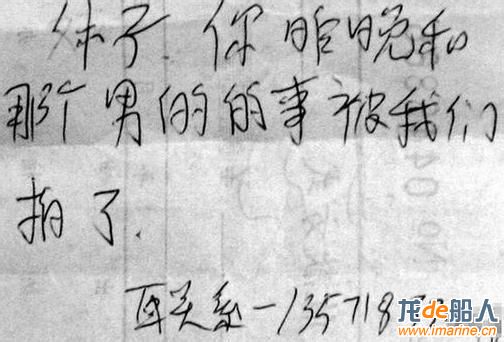 妹子.你昨晚和
那个男的的事被我们
拍了.
联系-135718
龙de船人
www.imarine.cn